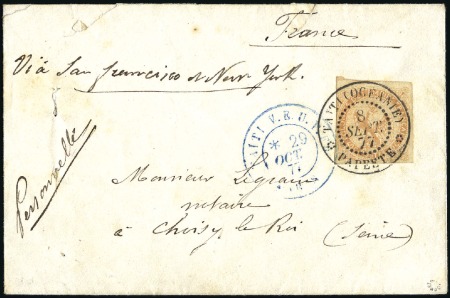 France
Via San francisco et New York.
Personnelle
TAITI (OCEANIE)
8
SEPT
77
PAPEETE
29
OCT
Monsieur Legrain
notaire
à Choisy le Roi (Seine)